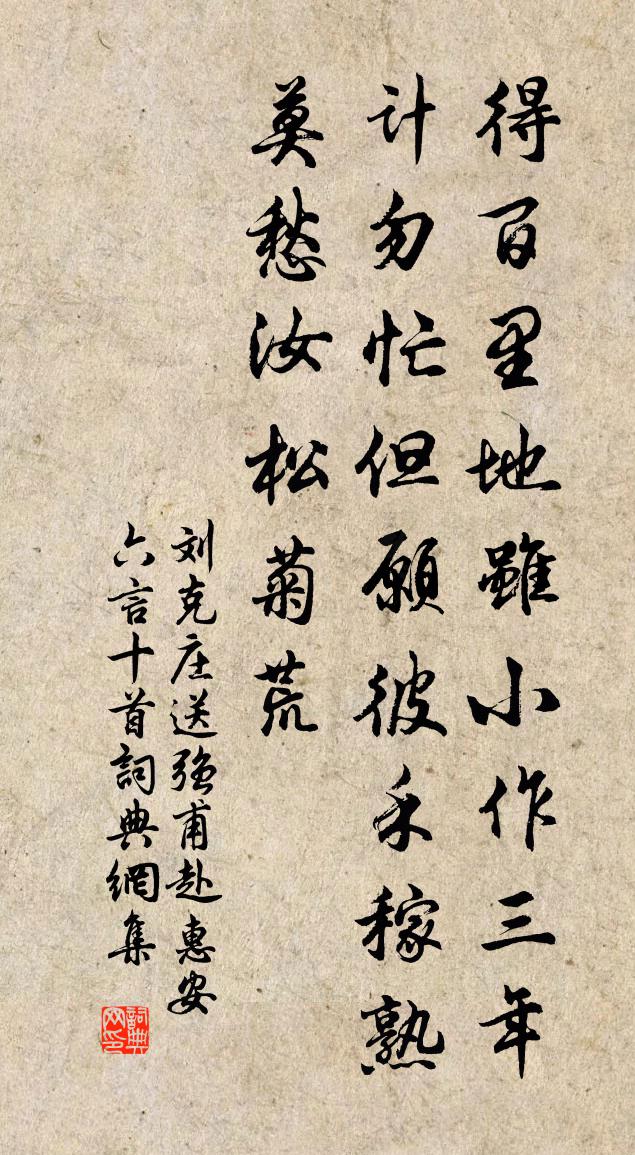 得百里地雖小作三年
计勿忙但願彼禾稼熟
莫愁汝松菊荒
刘克庄送强甫赴惠安
六言十首詞典網集
詞典
网印